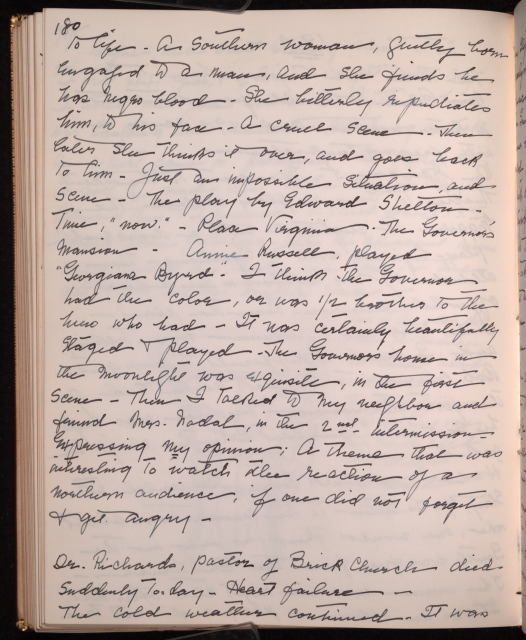 180
to life - A Southern woman, gently born
Engaged to a man, and she finds he
has Negro blood - She bitterly repudiates
him, to his face - A cruel scene - Then
later she thinks it over, and goes back
to him - Just an impossible situation, and
scene - The play by Edward Shelton -
Time, "now." - Place Virginia - The Governor's
Mansion - Annie Russell, played
"Georgiana Byrd - I think the Governor
had the "color, or was 1/2 brother to the
hero who had - It was certainly beautifully
staged & played - The Governors home in
the moonlight was exquisite, in the first
scene - Then I talked to my neighbor and
friend Mrs. Nadal, in the 2nd intermission -
Expressing my opinion; A theme that was
interesting to watch the reaction of a
northern audience, if one did not forget
& get angry -
Dr. Richards, pastor of Brick Church died
suddenly to-day - Heart failure -
The cold weather continued - It was